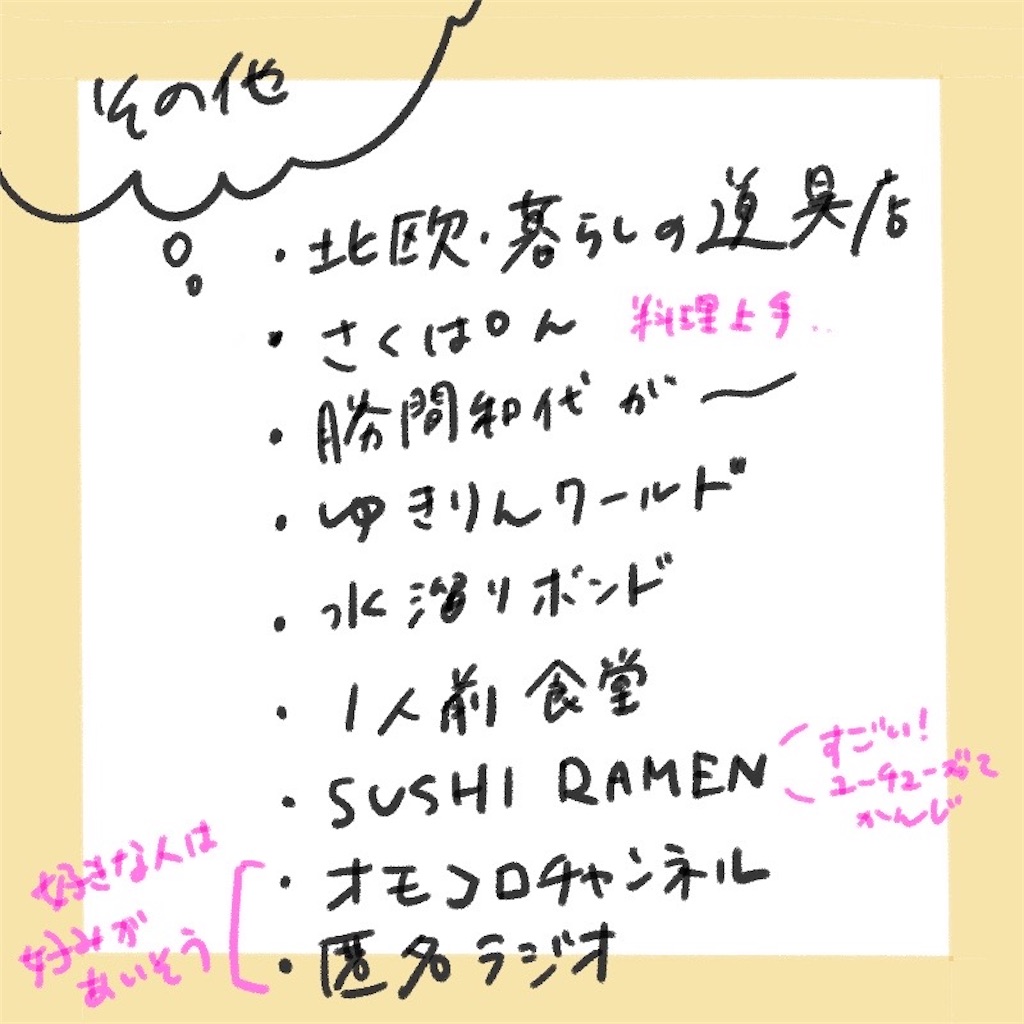 その他
・北欧、暮らしの道具店
・さくぱん 料理上手..
・勝間和代が〜
・ゆきりんワールド
・水溜りボンド
・1人前食堂
・SUSHI RAMEN
すごい!
ユーチューバーって
かんじ
・オモコロチャンネル
・匿名ラジオ
好きな人は
好みが
あいそう